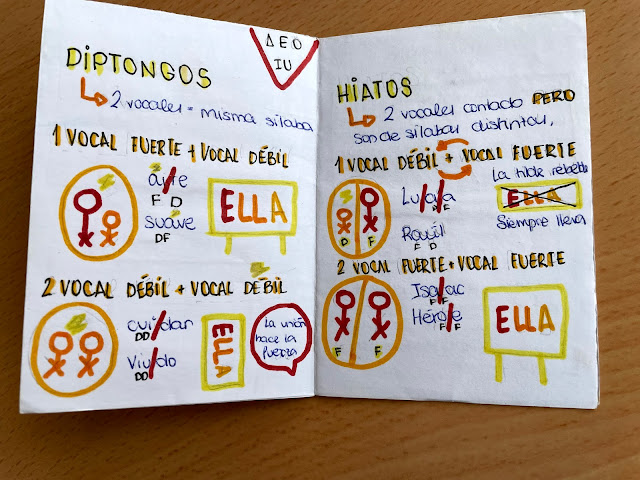 A E O
I U
DIPTONGOS
2 vocales = misma sílaba
1 VOCAL FUERTE + VOCAL DÉBIL
F D
suave
DF
ELLA
2 VOCAL DÉBIL + VOCAL DÉBIL
cui/dar
DD
Viu/do
DD
ELLA
La unión
hace la
fuerza
HIATOS
2 vocales contado PERO
son de sílabas distintas,
1 VOCAL DÉBIL + VOCAL FUERTE
La tilde rebelde
D F
Raúl
F D
ELLA
Siempre lleva
2 VOCAL FUERTE + VOCAL FUERTE
F F
Isa/ac
F F
Héro/e
F F
ELLA